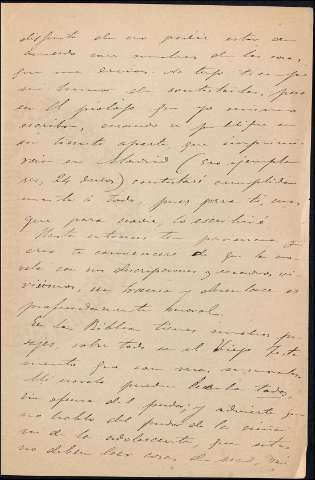 disfruto de no poder estar de
acuerdo con muchas de las cosas
que me decías. No tengo tiempo
ni humor de contestarlas, pero
en el prólogo que yo mismo
escribiré, cuando se publique en
un tomito aparte que imprimi-
rán en Madrid (500 ejempla-
res, 24 duros) contestaré cumplida-
mente á todo, pues para ti, mas
que para nadie, lo escribiré
Hasta entonces ten paciencia, y
creo te convenceré de que la no-
vela con sus descripciones y cuadros vi-
vísimos, un trama y desenlace es
profundamente moral.
En la Biblia tienes muchos pa-
sajes, sobre todo en el Viejo Testa-
mento que son mas,
Mi novela pueden leerla todos,
sin ofensa del pudor; y advierte que
no hablo del pudor de la niñez
ni de la adolescencia, que estos
no deben leer cosas de amor, ni